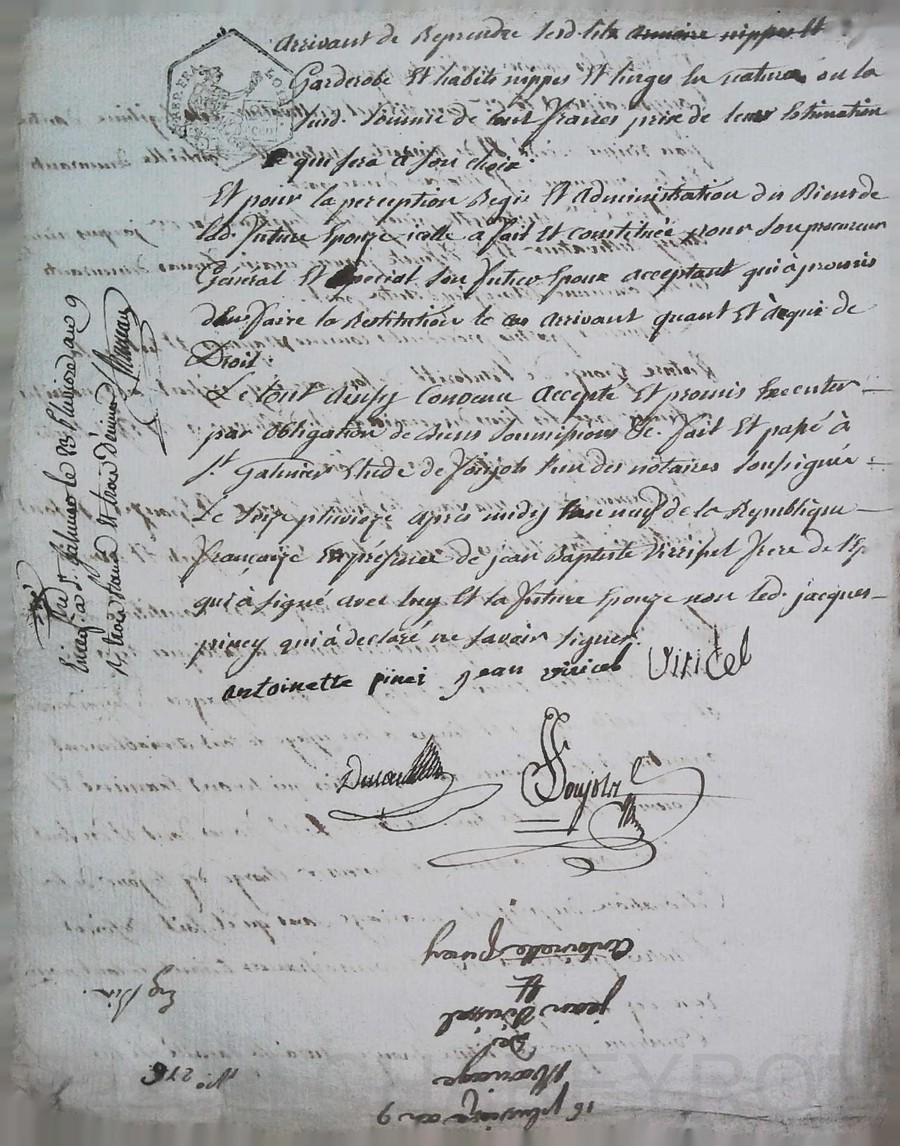 arrivant de Reprendre lesd. lit armoire nippes et
Garderobe Et habits nippes Et linges en nature ou la
susd. Somme de cent francs prix de leur Estimation
ce qui sera a son choix.
Et pour la perception Regie Et administration des Biens de
lad. future Epouze icelle à fait Et constitüée pour son procureur
Général Et Special son futur Epoux acceptant qui à promis
d'en faire la Restitution le cas arrivant quant Et à qui de
Droit :
Le tout ainsy convenu accepté Et promis Executer
par obligation de biens Soumissions &c. fait Et passé à
St Galmier Etude de Soujols l'un des notaires soussignés
Le Seize pluviôze après midy l'an neuf de la Republique
françaize En présence de jean Baptiste Virissel frere de l'Ep.
qui à signé avec luy Et la future Epouze non led. jacques
piney qui à déclaré ne savoir signer.
antoinette pinei jean viricel Viricel
Soujols
Enreg. à St galmier le 23 Pluviose an 9
R. trois francs et trois décimes
antoinette piney
&
jean Virissel
De
Mariage
16 pluvioze an 9
N.° 216